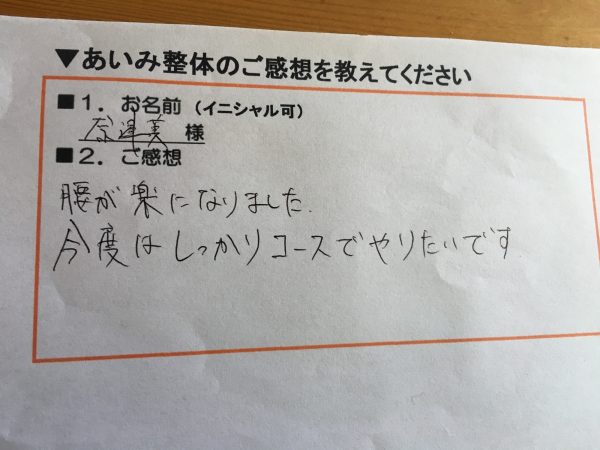 ▼あいみ整体のご感想を教えてください
■1．お名前（イニシャル可）
奈津美 様
■2．ご感想
腰が楽になりました.
今度はしっかりコースでやりたいです